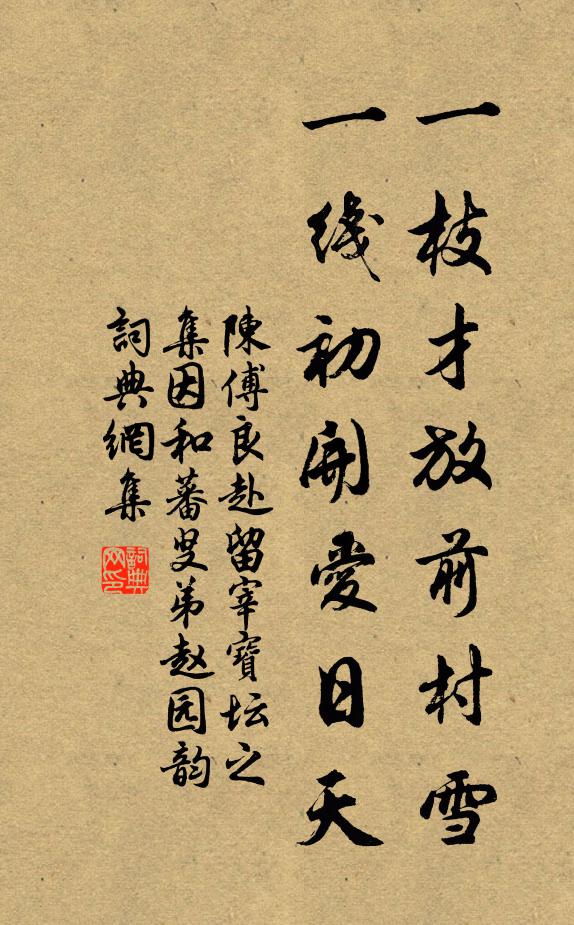 一枝才放前村雪
一线初開愛日天
陳傅良赴留宰寶坛之
集因和蕃叟弟赵园韵
詞典網集
詞典网印